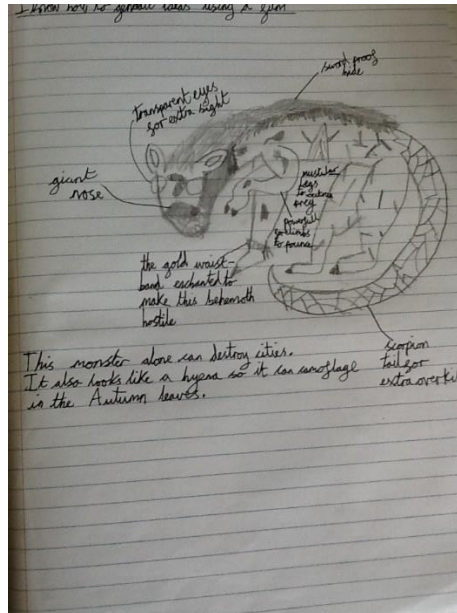 I know how to generate ideas using a
sword proof
hide
transparent eyes
for extra sight
giant
nose
muscular
legs
to catch
prey
powerful
to pounce
the gold waist-
band enchanted to
make this behemoth
hostile
scorpion
tail for
extra overkill
This monster alone can destroy cities.
It also looks like a hyena so it can camoflage
in the Autumn leaves.